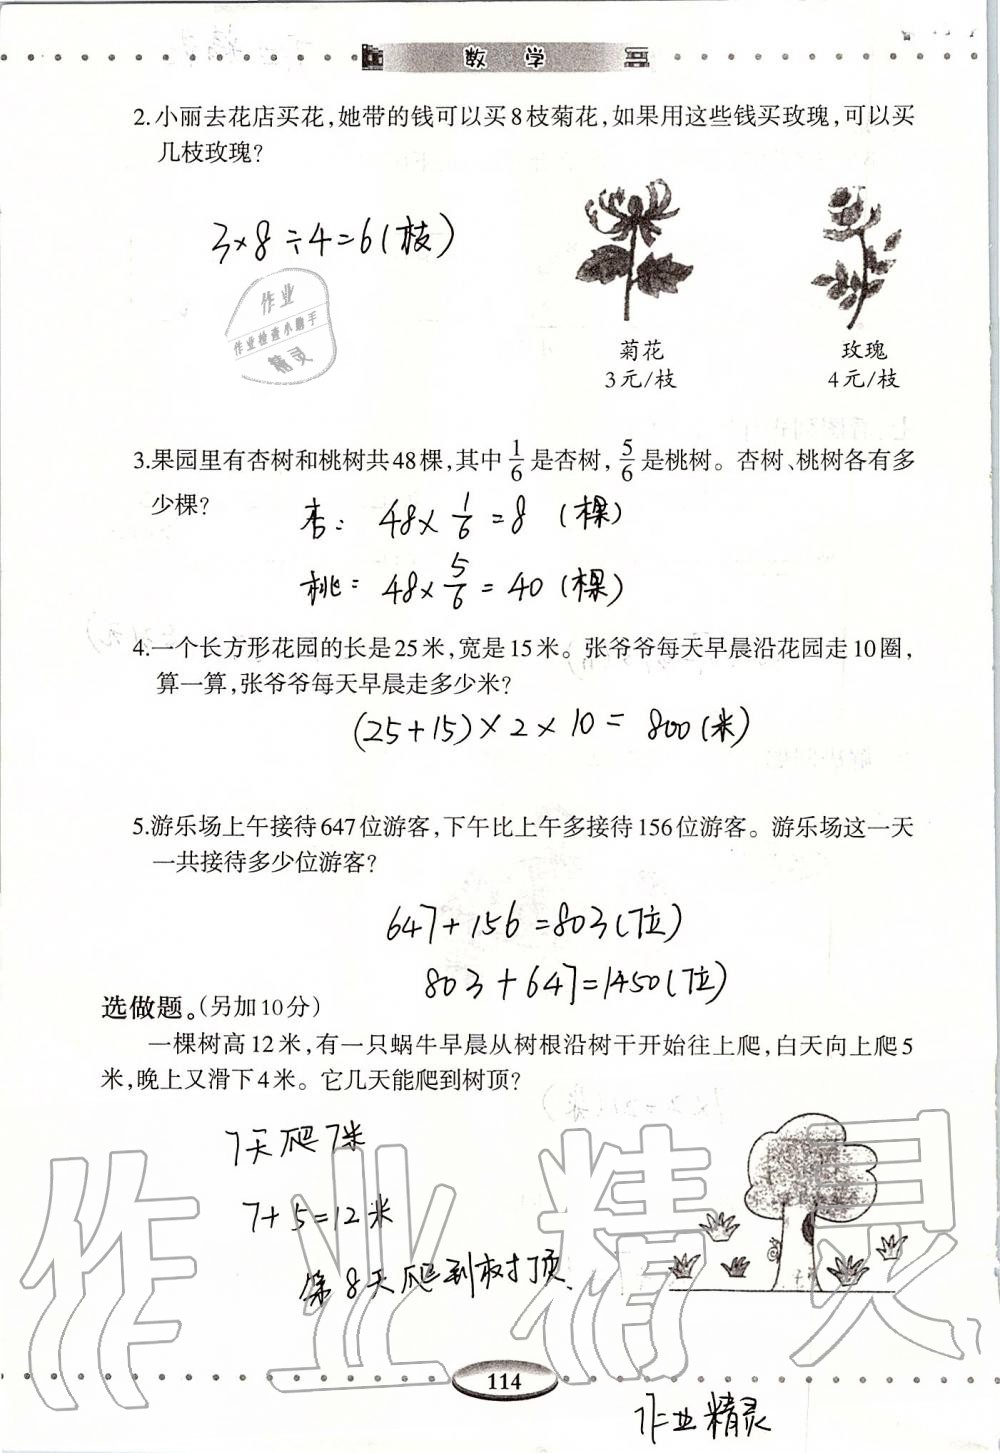 数 学
2.小丽去花店买花,她带的钱可以买8枝菊花,如果用这些钱买玫瑰,可以买
几枝玫瑰?
3×8÷4=6(枝)
作业
作业检查小助手
精灵
菊花
3元/枝
玫瑰
4元/枝
3.果园里有杏树和桃树共48棵,其中1/6是杏树,5/6是桃树。杏树、桃树各有多
少棵?
杏: 48×1/6=8 (棵)
桃: 48×5/6=40(棵)
4.一个长方形花园的长是25米,宽是15米。张爷爷每天早晨沿花园走10圈,
算一算,张爷爷每天早晨走多少米?
(25+15)×2×10=800(米)
5.游乐场上午接待647位游客,下午比上午多接待156位游客。游乐场这一天
一共接待多少位游客?
647+156=803(位)
803+647=1450(位)
选做题。(另加10分)
一棵树高12米,有一只蜗牛早晨从树根沿树干开始往上爬,白天向上爬5
米,晚上又滑下4米。它几天能爬到树顶?
7天爬7米
7+5=12米
第8天爬到树顶.
作业精灵
114
作业精灵